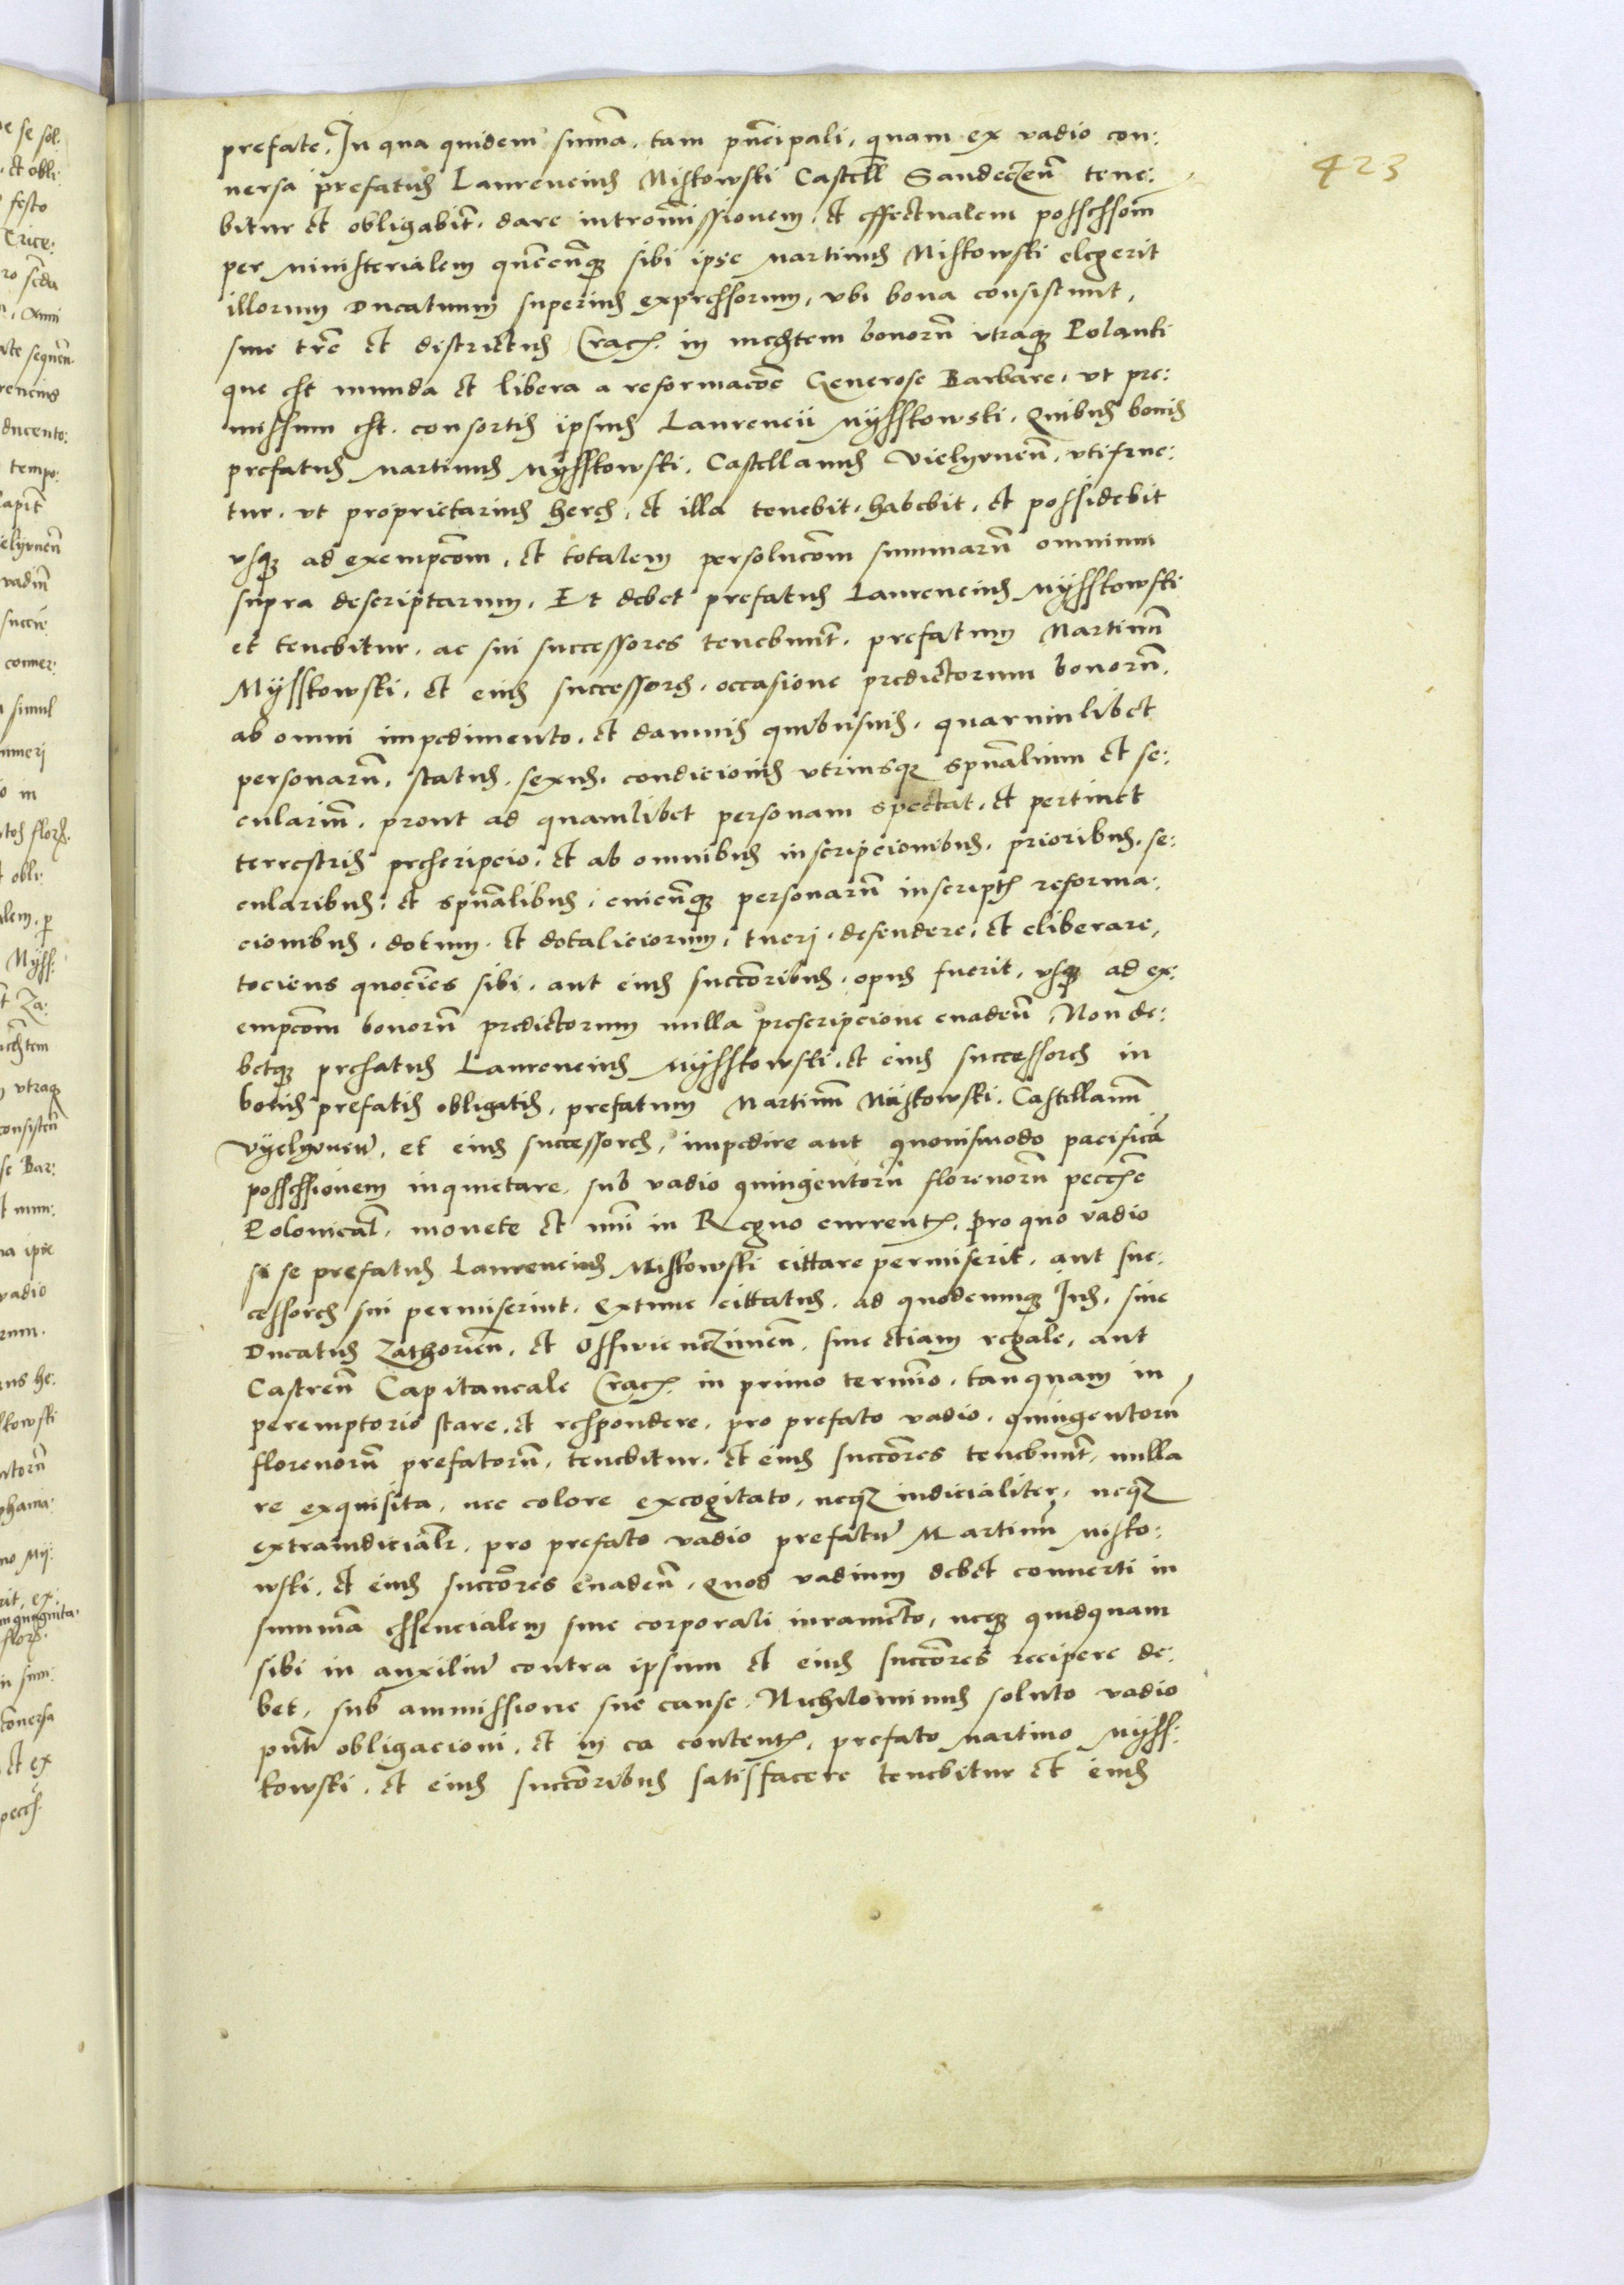 423
prefate. In qua quidem summa, tam principali, quam ex vadio con:
uersa prefatus Laurencius Miskowski Castell Sandeczen tene:
bitur et obligabit, dare intromissionem, et effectualem possessiom
per ministerialem quemcunque sibi ipse Martinus Miskowski elegerit
illorum Ducatuum superius expressorum, vbi bona consistunt,
siue tre et districtus Crac. in medietem bonoru vtraque Polanki
que est munda et libera a reformacoe Generose Barbare, vt pre:
missum est. consortis ipsius Laurencii Mysskowski. Quibus bonis
prefatus Martinus Mysskowski, Castellanus Vielyunen, vtifrue:
tur, vt proprietarius heres, et illa tenebit, habebit, et possidebit
vsque ad exempcom, et totalem persolucom summaru omnium
supra descriptarum. Et debet prefatus Laurencius Mysskowski
et tenebitur, ac sui successores tenebunt, prefatum Martinum
Mysskowski, et eius successores, occasione predictorum bonoru,
ab omni impedimento, et damnis quibusuis, quarumlibet
personaru, status, sexus, condicionis vtriusque spualium et se:
culariu, prout ad quamlibet personam spectat, et pertinet
terrestris prescripcio, et ab omnibus inscripcionibus, prioribus, se:
cularibus, et spualibus, cuicunque personaru inscript, reforma:
cionibus, dotum, et dotaliciorum, tueri, defendere, et eliberare,
tociens quocies sibi, aut eius succoribus, opus fuerit, vsque ad ex:
empcom bonoru predictorum nulla prescripcione euaden, Non de:
betque prefatus Laurencius Mysskowski, et eius successores in
bonis prefatis obligatis, prefatum Martinum Miskowski, Castellanum
Vyelyunen, et eius successores, impedire aut quouismodo pacifica
possessionem inquietare, sub vadio quingentoru florenoru pecce
Polonical, monete et nui in Regno current, pro quo vadio
si se prefatus Laurencius Miskowski cittare permiserit, aut suc:
cessores sui permiserint, extunc cittatus, ad quodcunque Ius, siue
Ducatus Zathorien, et Osswienczimen, siue etiam regale, aut
Castren Capitaneale Crac. in primo termino, tanquam in
peremptorio stare, et respondere, pro prefato vadio, quingentoru
florenoru prefatoru, tenebitur, et eius succores tenebunt, nulla
re exquisita, nec colore excogitato, neque iudicialiter, neque
extraiudicialr, pro prefato vadio prefatu Martinu Misko:
wski, et eius succores euaden, Quod vadium debet conuerti in
summa essencialem sine corporali iuramento, neque quidquam
sibi in auxiliu contra ipsum et eius succores recipere de:
bet, sub ammissione sue cause. Nichilominus soluto vadio
pnti obligacioni, et in ea content, prefato Martino Myss:
kowski, et eius succoribus satisfacere tenebitur et eius